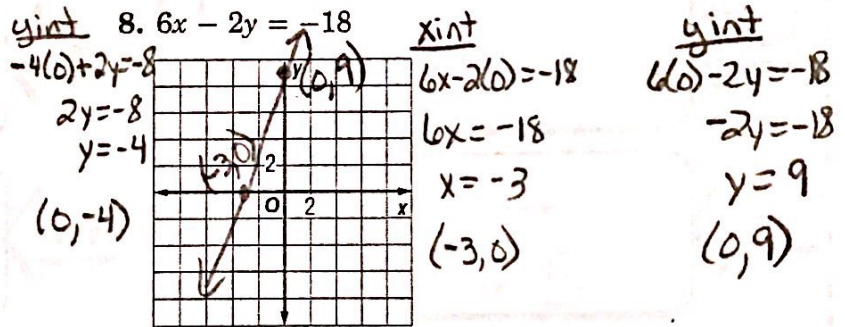 yint
-4(0)+2y=-8
2y=-8
y=-4
(0,-4)
8. 6x − 2y = −18
y
(0,9)
(-3,0)
2
O 2 x
xint
6x-2(0)=-18
6x=-18
x=-3
(-3,0)
yint
6(0)-2y=-18
-2y=-18
y=9
(0,9)